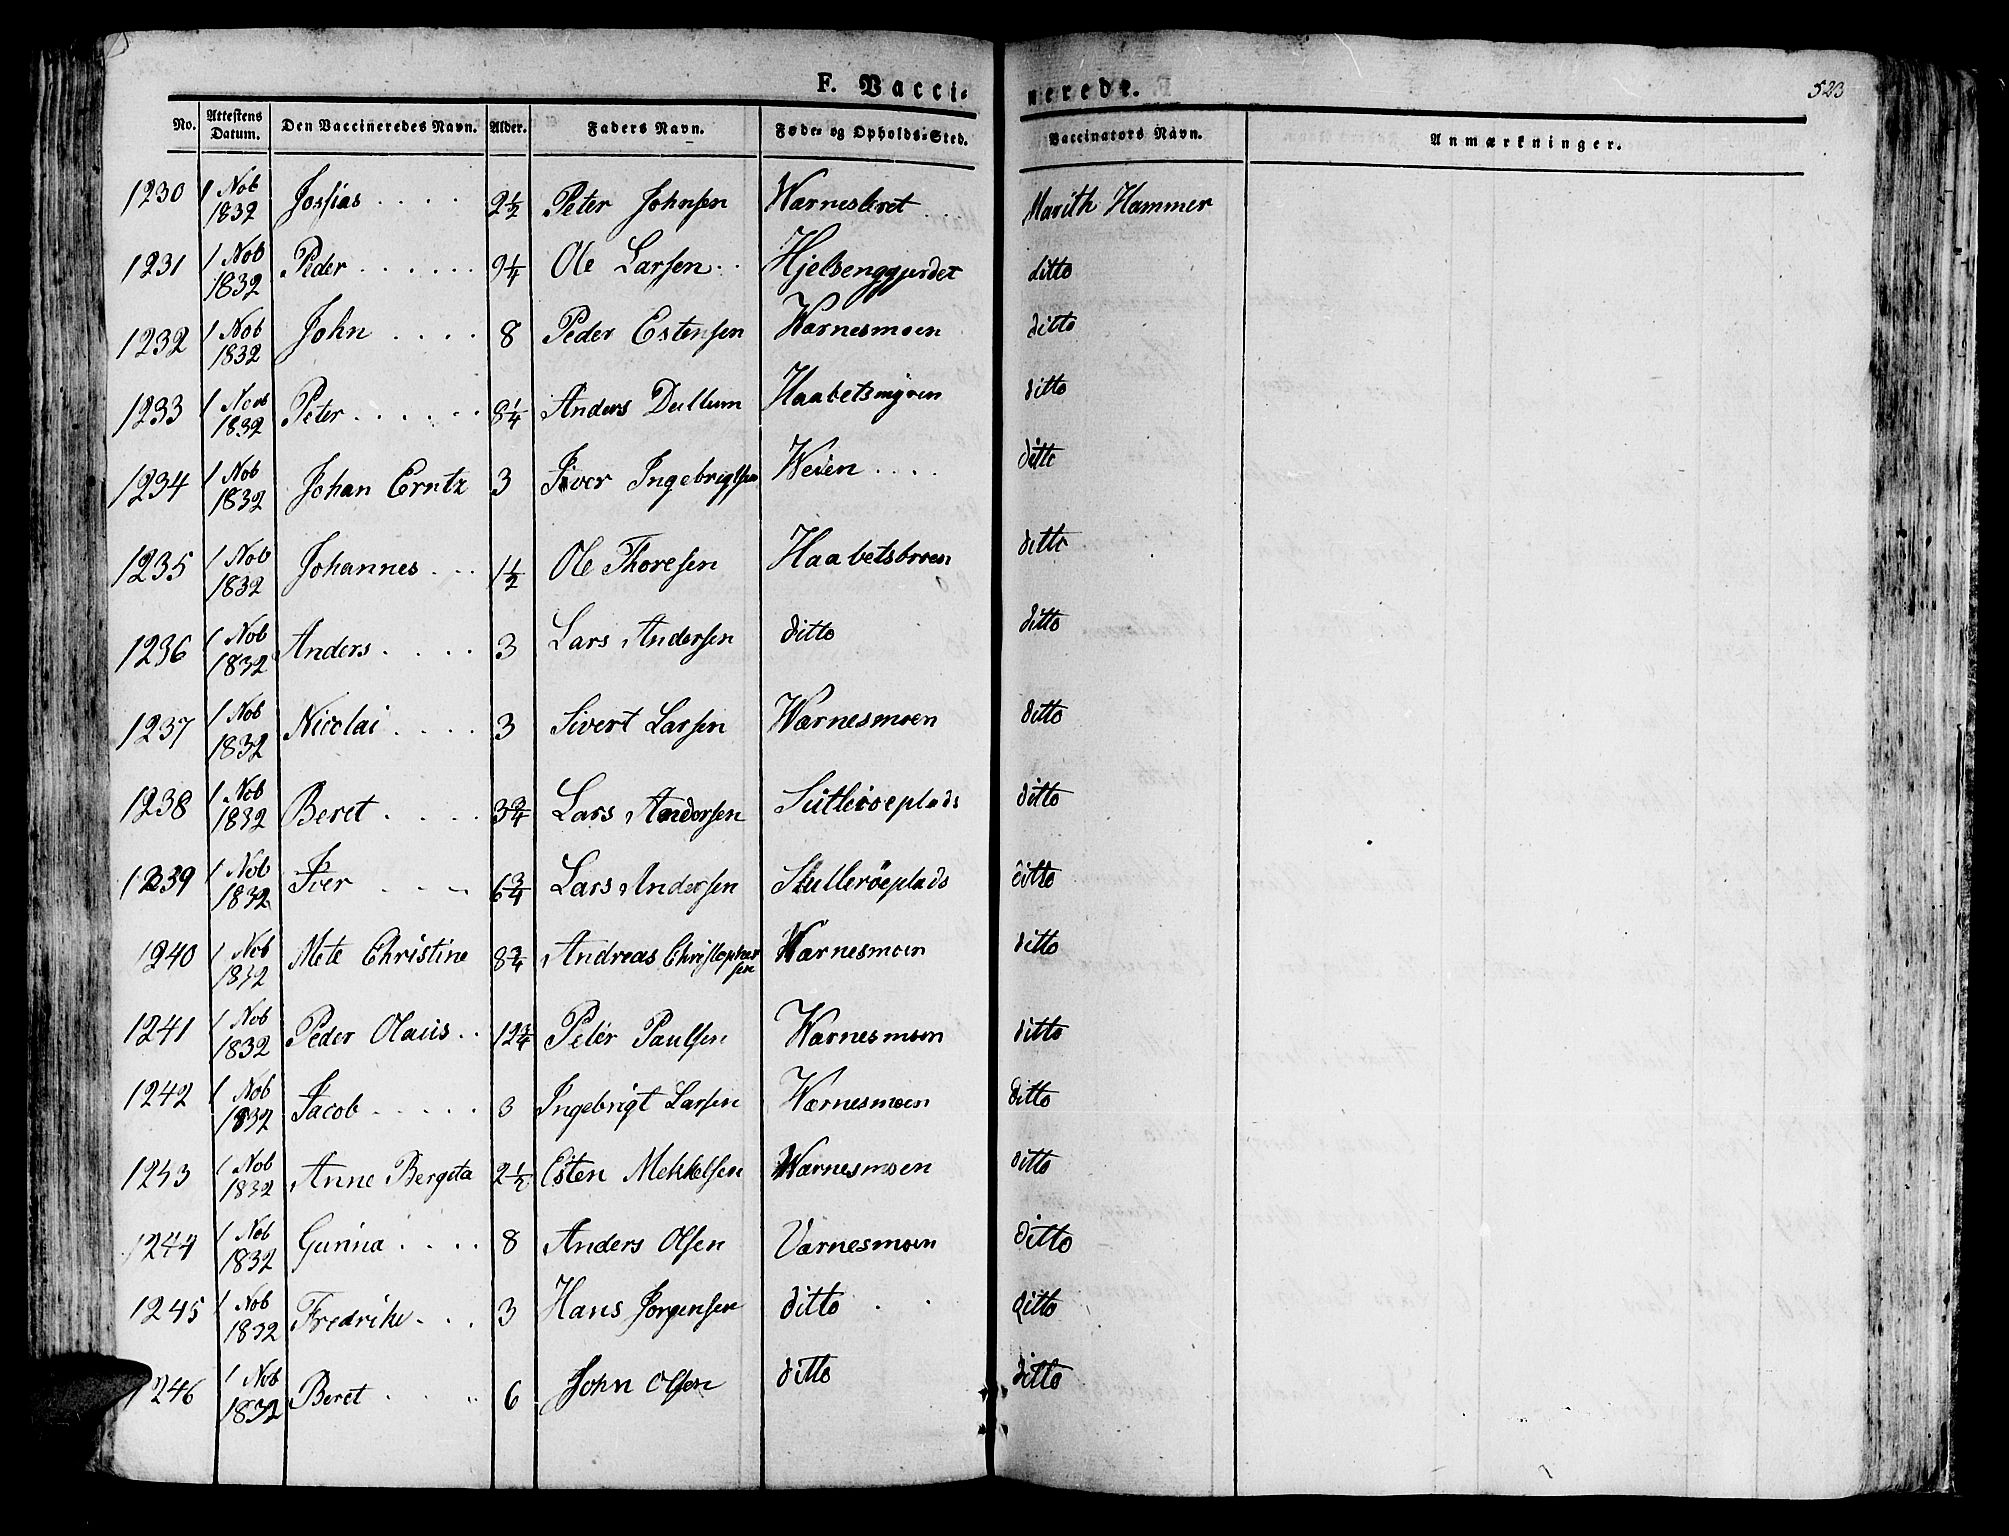 523
F. Vaccinerede.
No. Attestens Datum. Den Vaccineredes Navn. Alder. Faders Navn. Føde- og Opholds-Sted. Vaccinators Navn. Anmærkninger.
1230 1 Nob 1832 Jossias . . . . 2½ Peter Johnsen Wærnesbret Marith Hammer
1231 1 Nob 1832 Peder . . . . . . 9¼ Ole Larsen . . Hjelsenggjerdet ditto
1232 1 Nob 1832 John . . . . 8 Peder Estensen Wærnesmoen ditto
1233 1 Nov 1832 Peter . . . . . . 8¼ Anders Dullum Haabetsmyren ditto
1234 1 Nob 1832 Johan Erntz 3 Iver Ingebrigtsen Weien . . . . ditto
1235 1 Nob 1832 Johannes . . . 1½ Ole Thoresen Haabetsbroen ditto
1236 1 Nob 1832 Anders . . . . 3 Lars Andersen ditto ditto
1237 1 Nob 1832 Nicolai . . . . 3 Sivert Larsen Wærnesmoen ditto
1238 1 Nob 1832 Beret . . . . 3¾ Lars Andersen ditto
1239 1 Nob 1832 Iver . . . 6¾ Lars Andersen Skulleröeplads ditto
1240 1 Nob 1832 Mete Christine 8¾ Andreas Christophersen Wærnesmoen ditto
1241 1 Nob 1832 Peder Olaus . . 12¾ Peter Paulsen Wærnesmoen ditto
1242 1 Nob 1832 Jacob . . . . . 3 Ingebrigt Larsen Wærnesmoen ditto
1243 1 Nob 1832 Anne Bergeta 2½ Esten Mekkelsen Wærnesmoen ditto
1244 1 Nob 1832 Gunna . . . . 8 Anders Olsen Værnesmoen ditto
1245 1 Nob 1832 Fredrike . . . 3 Hans Jørgensen ditto . . ditto
1246 1 Nob 1832 Beret . . . . 6 John Olsen ditto ditto